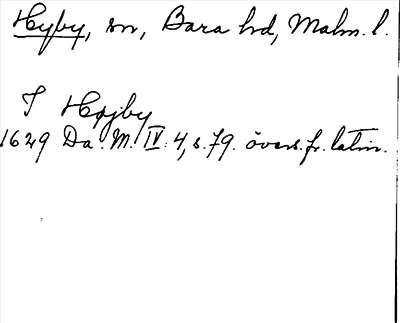 Hyby, sn, Bara hd, Malm. l.
I Højby
1629 Da. M. IV. 4, s. 79. övers. fr. latin.